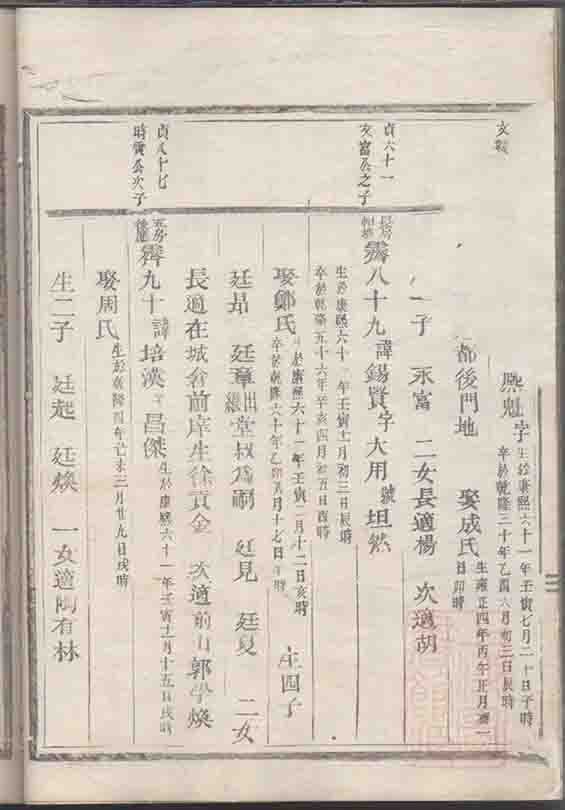 文
熙魁字生於康熙六十一年壬寅七月二十日子時
卒於乾隆三十年乙酉六月初三日辰時
都後門地 娶成氏生雍正四年丙午正月初一
日卯時
一子 永富 二女長適楊 次適胡
貞六十一
文富公之子
長房
霽八十九諱錫賢字大用號坦然
生於康熙六十一年壬寅十一月初三日辰時
卒於乾隆五十六年辛亥四月初五日酉時
娶鄭氏生於康熙六十一年壬寅二月十二日亥時
卒於乾隆六十年乙卯八月十七日午時
生四子
廷昻 廷章出繼堂叔為嗣 廷見 廷夏 二女
長適在城倉前岸生徐貢金 次適前山郭學煥
貞八十七
時賓公次子
霽九十諱培漢字昌傑生於康熙六十一年壬寅十一月十五日戌時
娶周氏生於乾隆四年己未三月廿九日戌時
生二子 廷起 廷煥 一女適陶有林